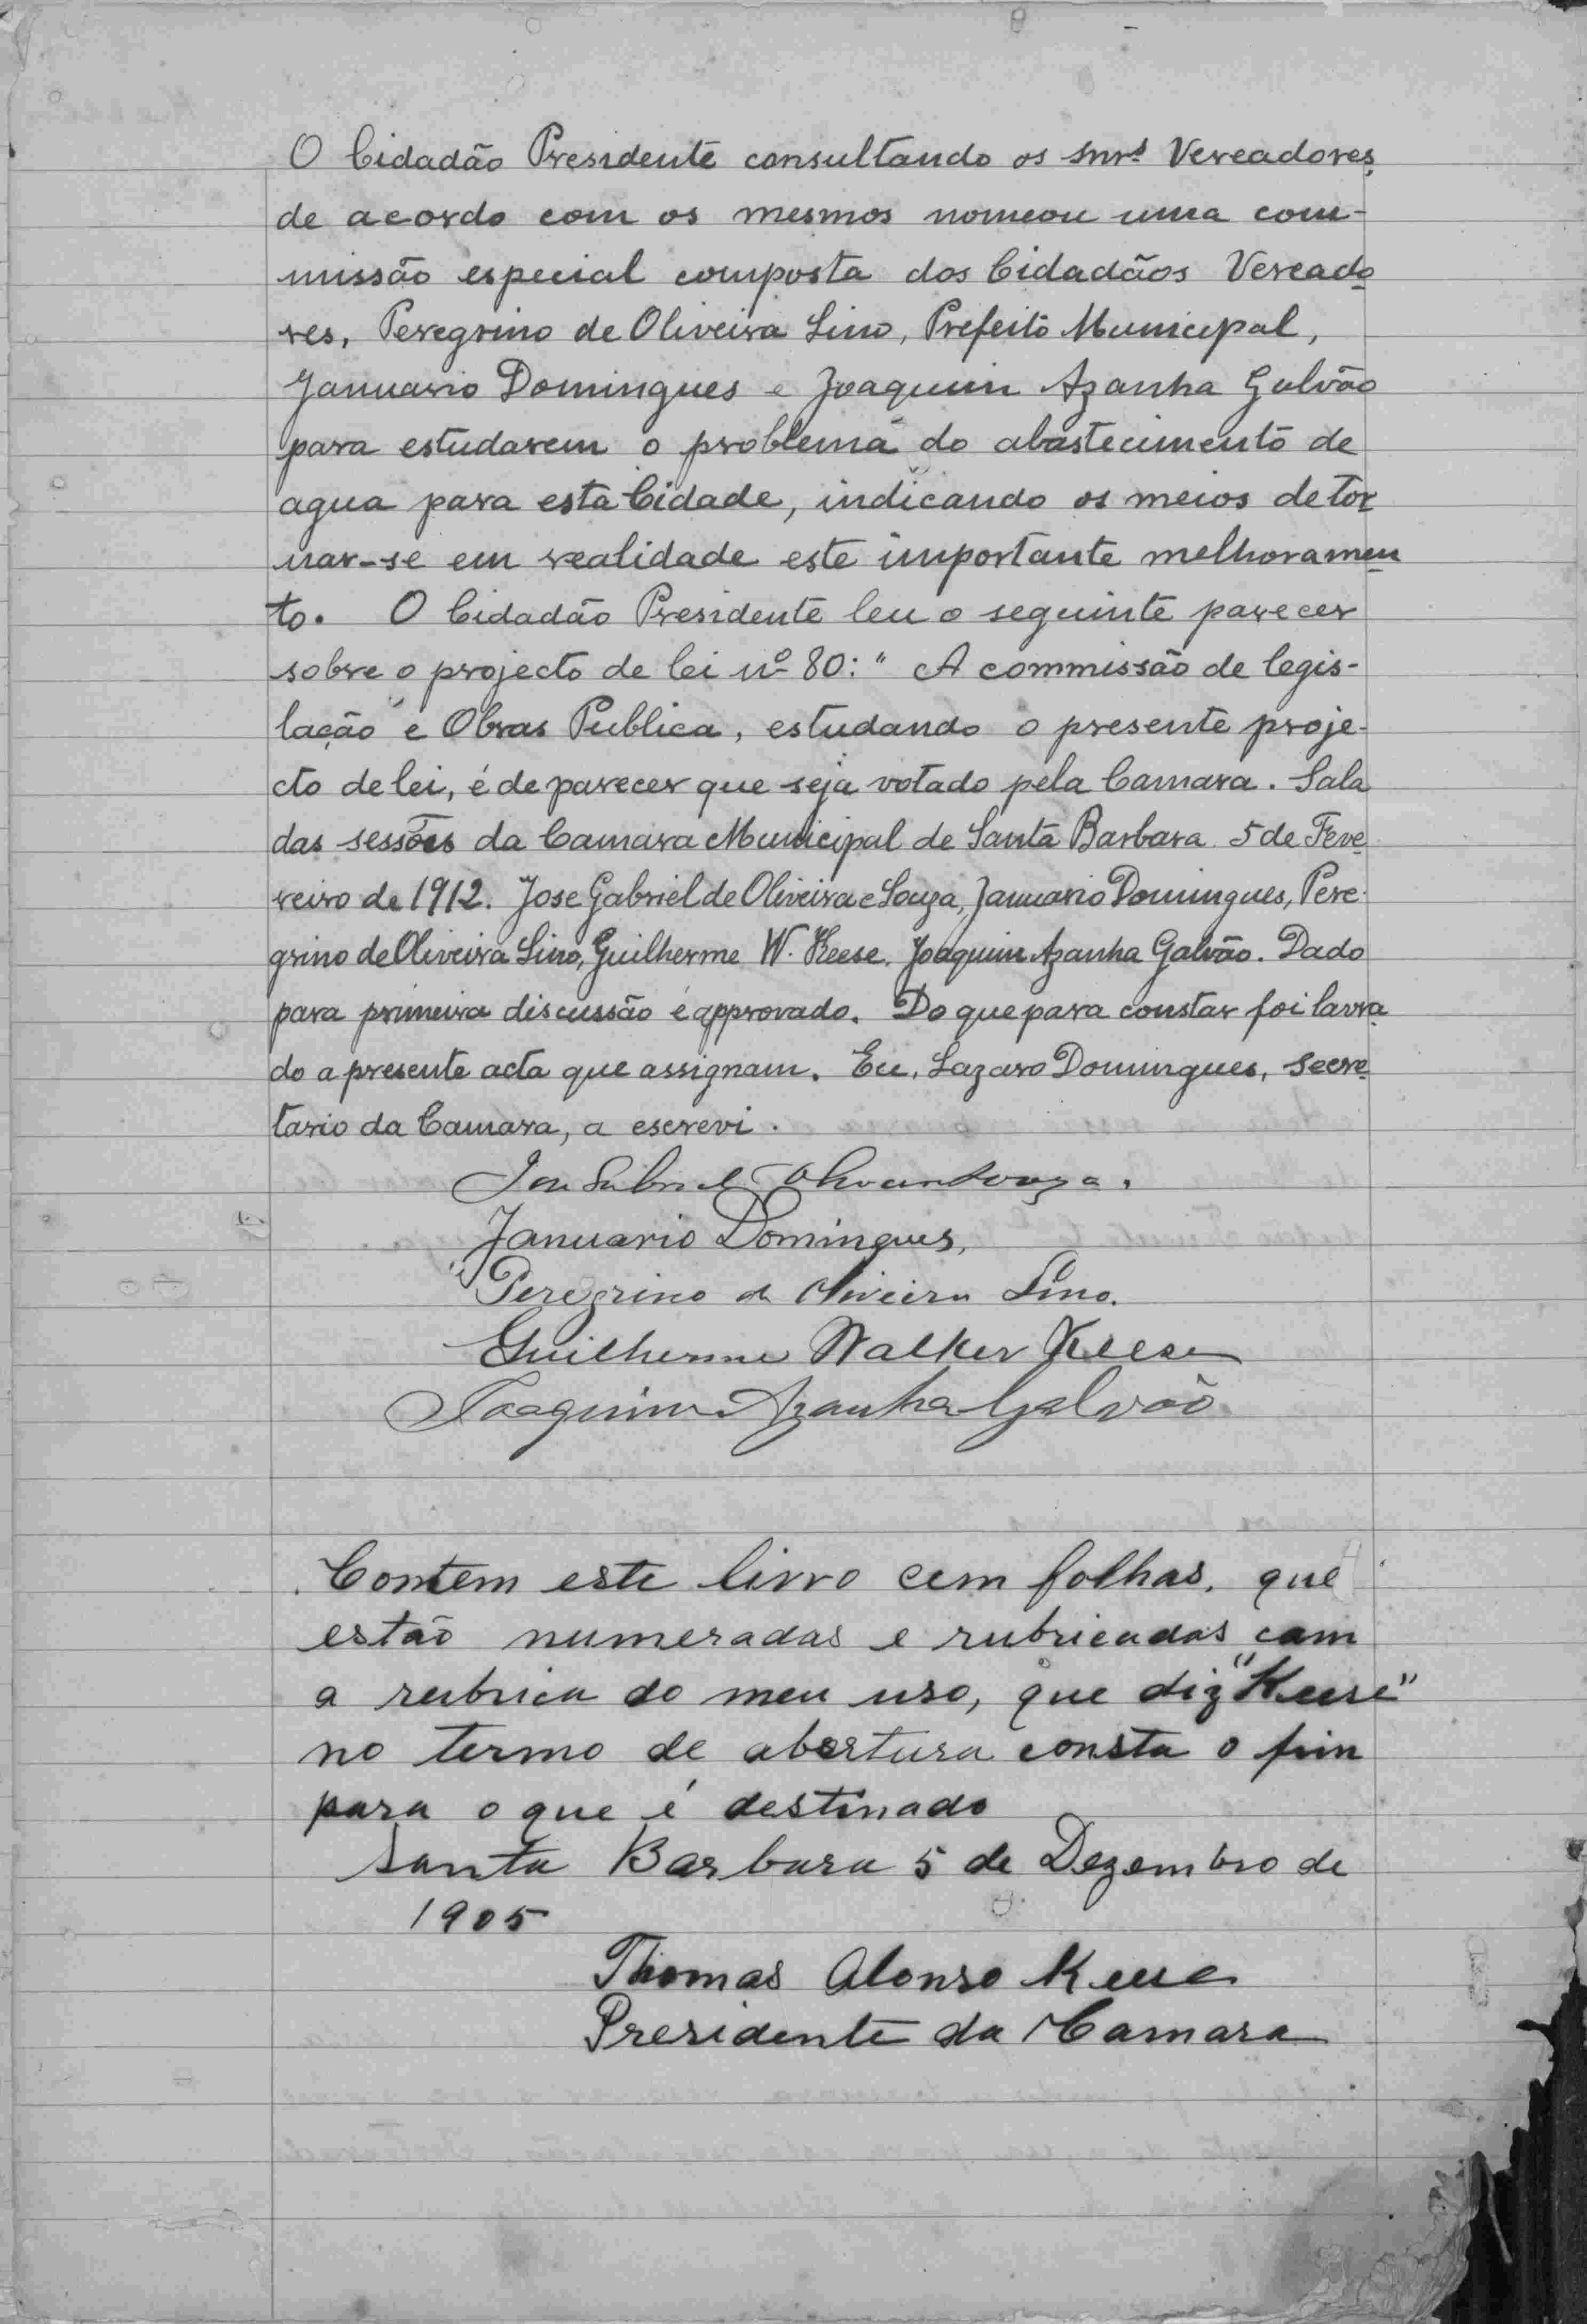 O Cidadão Presidente consultando os snrs Vereadores,
de acordo com os mesmos nomeou uma com-
missão especial composta dos Cidadãos Vereado
res, Peregrino de Oliveira Lino, Prefeito Municipal,
Januario Domingues e Joaquim Azanha Galvão
para estudarem o problema do abastecimento de
agua para esta Cidade, indicando os meios de tor
nar-se em realidade este importante melhoramen
to. O Cidadão Presidente leu o seguinte parecer
sobre o projecto de lei nº 80: " A commissão de legis-
lação e Obras Publica, estudando o presente proje-
cto de lei, é de parecer que seja votado pela Camara. Sala
das sessões da Camara Municipal de Santa Barbara 5 de Feve
reiro de 1912. Jose Gabriel de Oliveira e Souza, Januario Domingues, Pere-
grino de Oliveira Lino, Guilherme W. Keese. Joaquim Azanha Galvão. Dado
para primeira discussão é approvado. Do que para constar foi lavra
do a presente acta que assignam. Eu, Lazaro Domingues, secre
tario da Camara, a escrevi.
Jose Gabriel Oliveira Souza.
Januario Domingues,
Peregrino de Oliveira Lino.
Guilherme Walker Keese
Joaquim Azanha Galvão
Contem este livro cem folhas, que
estão numeradas e rubricadas com
a rubrica do meu uso, que diz "Keese"
no termo de abertura consta o fim
para o que é destinado
Santa Barbara 5 de Dezembro de
1905
Thomas Alonso Keese
Presidente da Camara